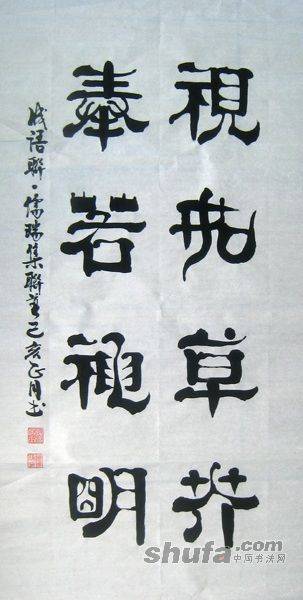 視如草芥
奉若神明
成語聯儒瑞集聯並己亥正月书
shufa.com
中国书法网